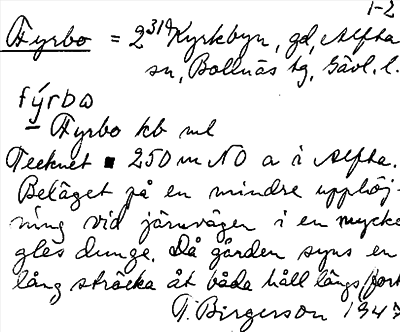 1-2
Fyrbo = 2³¹⁹ Kyrkbyn, gd, Alfta
sn, Bollnäs tg, Gävl. l.
fýrbω
– Fyrbo kb ml
Tecknet ▪ 250 m NO a i Alfta.
Beläget på en mindre upphöj-
ning vid järnvägen i en mycke
gles dunge. Då gården syns en
lång sträcka åt båda håll längs
T. Birgerson 194